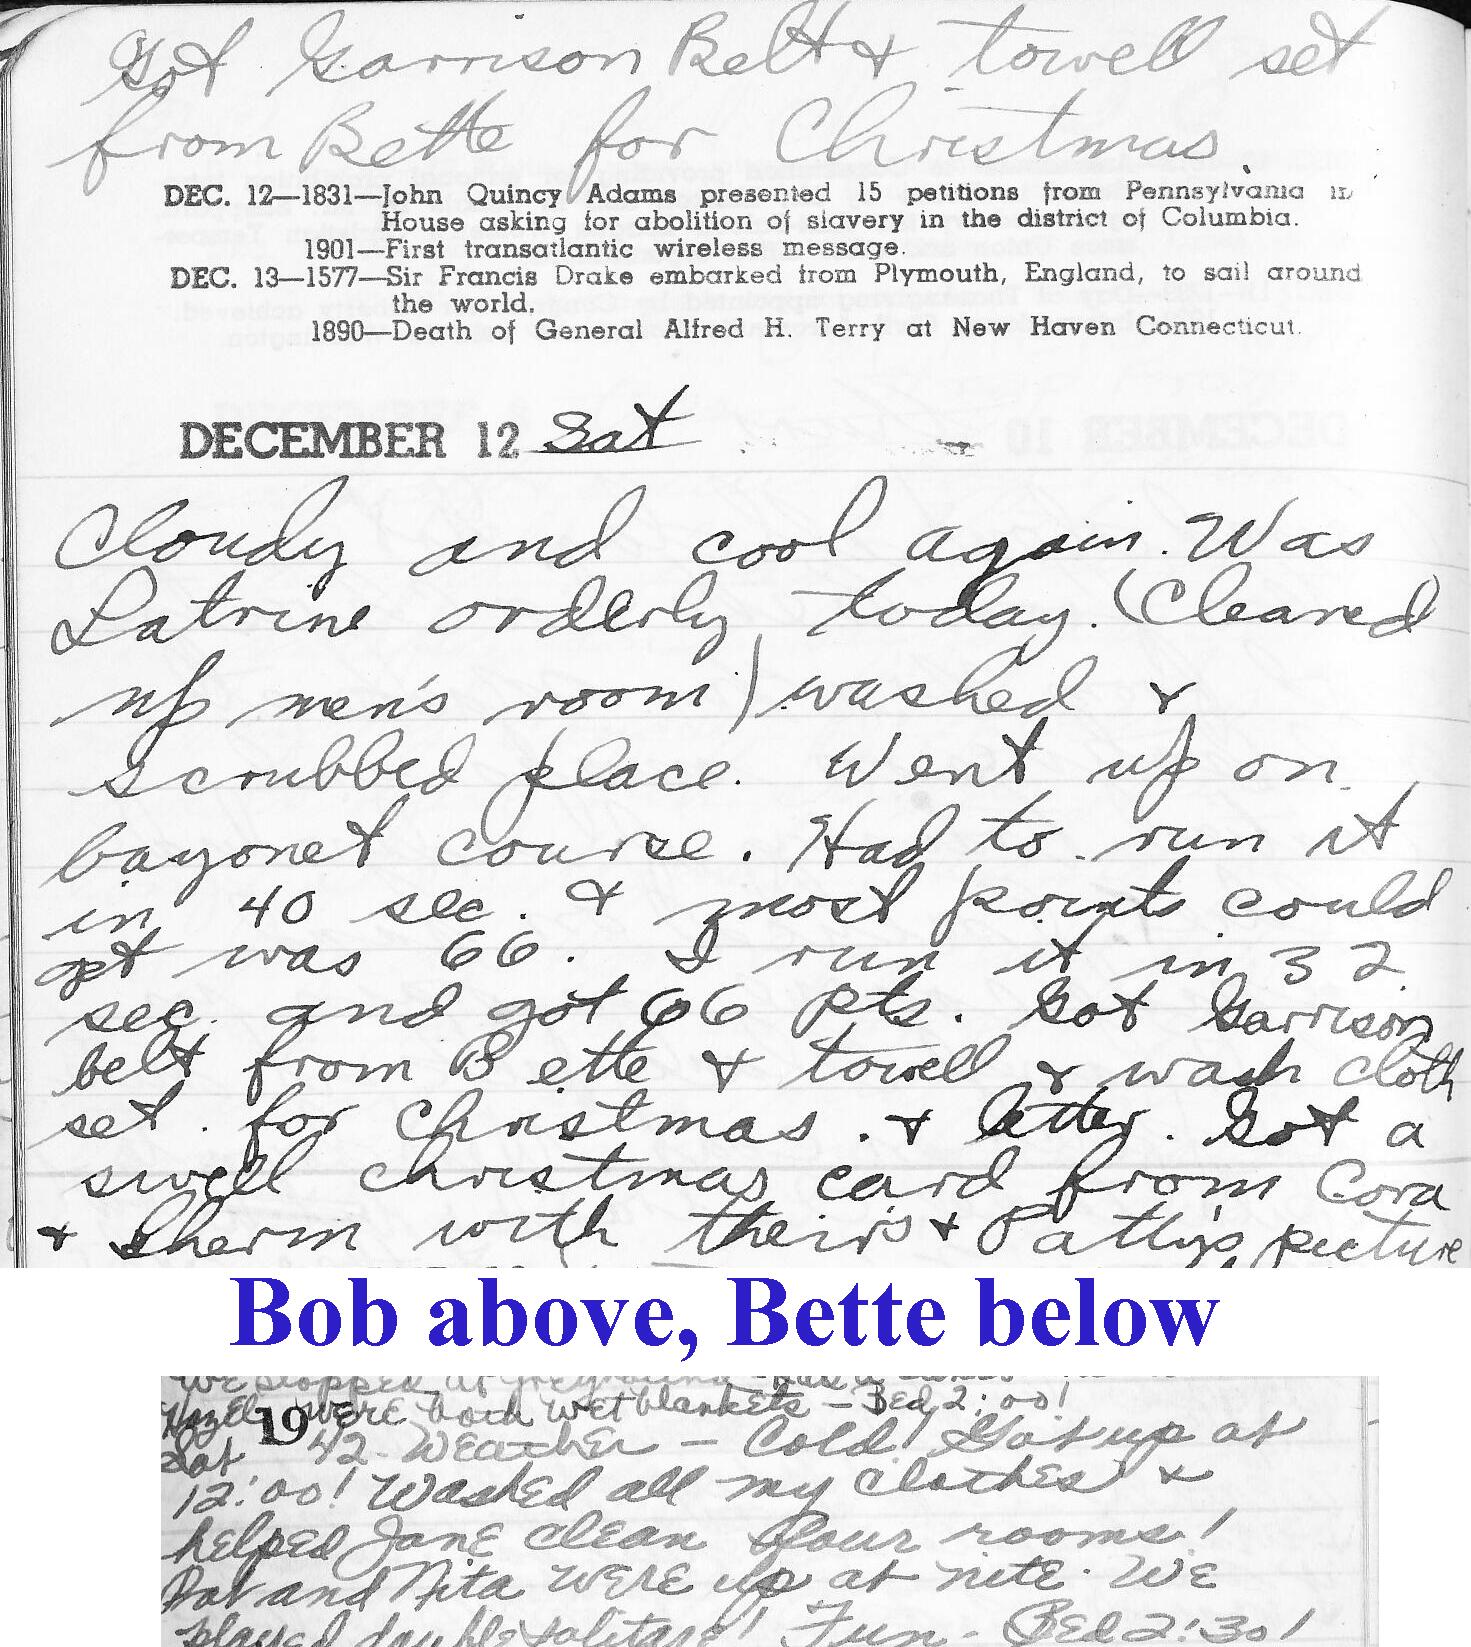 Got Garrison Belt & towell set
from Bette for Christmas.
DEC. 12—1831—John Quincy Adams presented 15 petitions from Pennsylvania in
House asking for abolition of slavery in the district of Columbia.
1901—First transatlantic wireless message.
DEC. 13—1577—Sir Francis Drake embarked from Plymouth, England, to sail around
the world.
1890—Death of General Alfred H. Terry at New Haven Connecticut.
DECEMBER 12 Sat
Cloudy and cool again. Was
Latrine orderly today. (Cleaned
up men's room) washed &
scrubbed place. Went up on
bayonet course. Had to run it
in 40 sec. & most points could
get was 66. I run it in 32
sec. and got 66 pts. Got Garrison
belt from Bette & towell & wash cloth
set. for Christmas. & letter. Got a
swell christmas card from Cora
& Sherm with their's & Patty's picture
Bob above, Bette below
We stopped at Greyhound
Hazel were both wet blankets – Bed 2:00!
Sat 1942 - Weather – Cold! Got up at
12:00! Washed all my clothes &
helped Jane clean four rooms!
and Nita were up at nite. We
played double solitare! Fun – Bed 2:30!